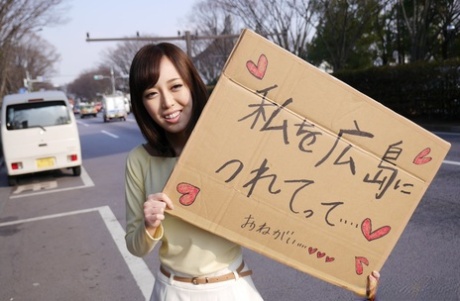 私を広島に
つれてって....
おねがい...